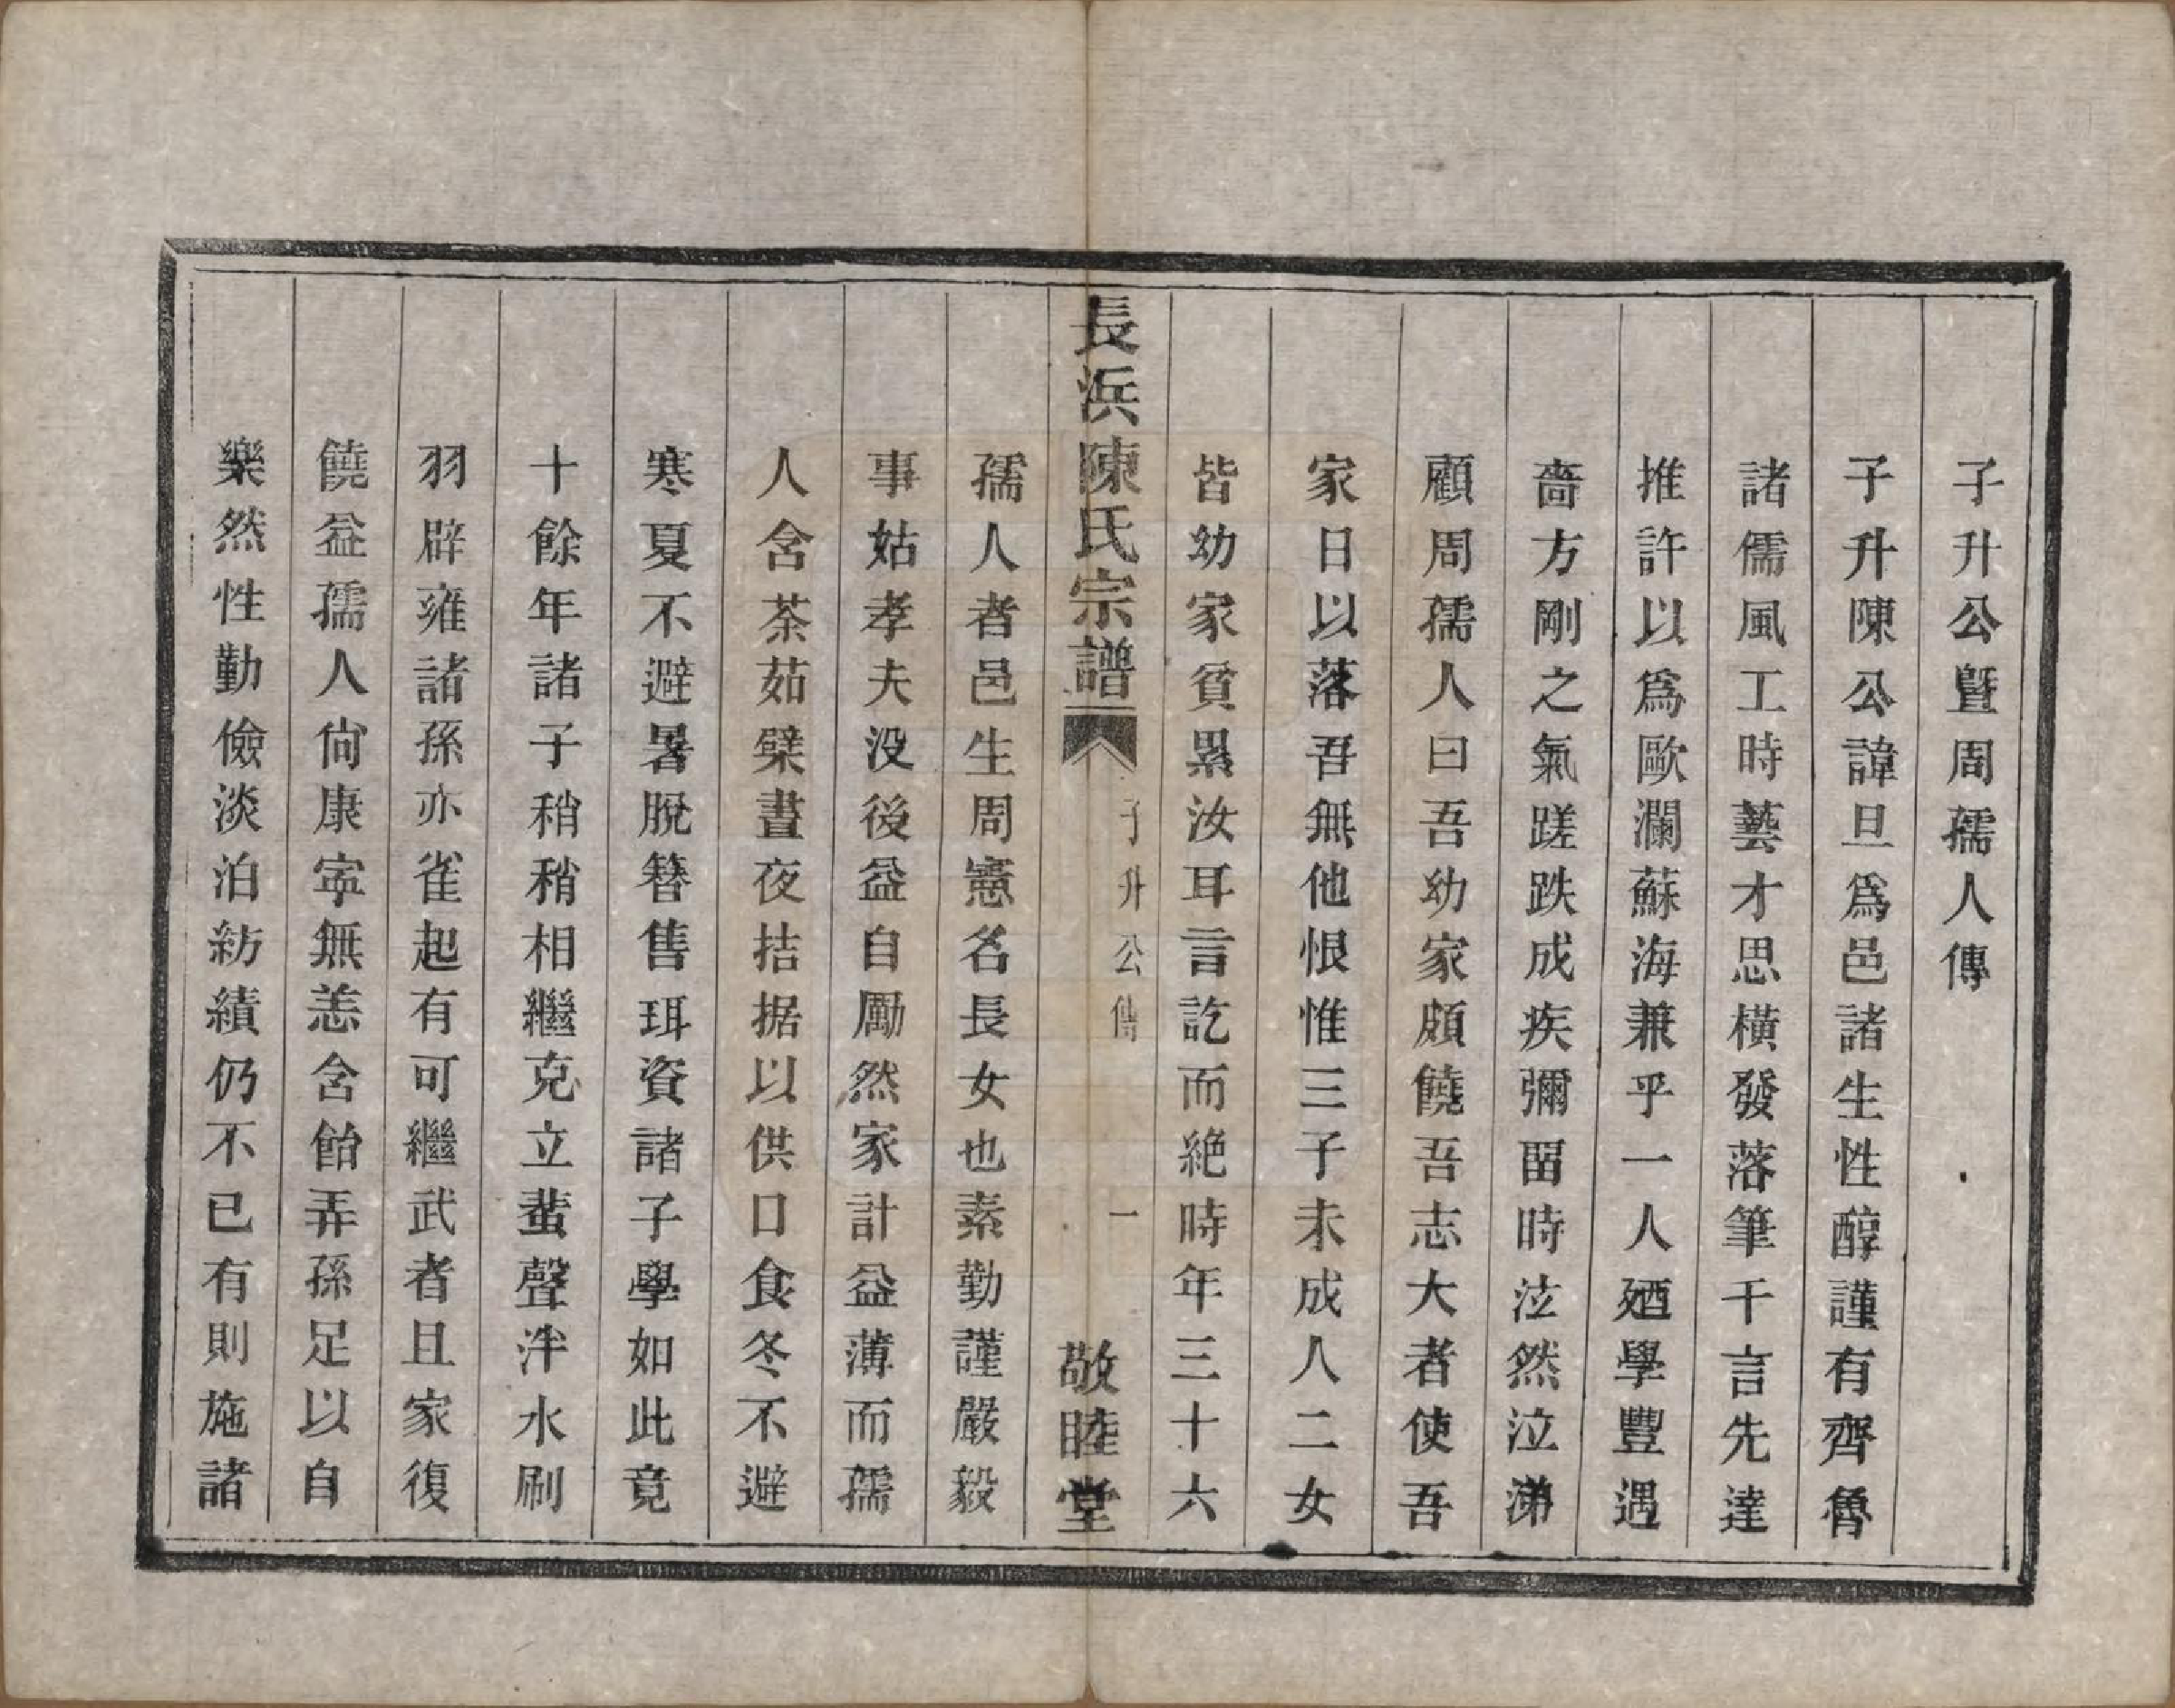 子升公曁周孺人傳
子升陳公諱旦爲邑諸生性醇謹有齊魯
諸儒風工時藝才思橫發落筆千言先達
推許以爲歐瀾蘇海兼乎一人廼學豐遇
嗇方剛之氣蹉跌成疾彌留時泫然泣涕
顧周孺人曰吾幼家頗饒吾志大者使吾
家日以落吾無他恨惟三子未成人二女
皆幼家貧累汝耳言訖而絶時年三十六
長浜陳氏宗譜
子升公傳
一
敬睦堂
孺人者邑生周憲名長女也素勤謹嚴毅
事姑孝夫没後益自勵然家計益薄而孺
人含荼茹櫱晝夜拮据以供口食冬不避
寒夏不避暑脫簪售珥資諸子學如此竟
十餘年諸子稍稍相繼克立蜚聲泮水刷
羽辟雍諸孫亦雀起有可繼武者且家復
饒益孺人尙康寜無恙含飴弄孫足以自
樂然性勤儉淡泊紡績仍不已有則施諸